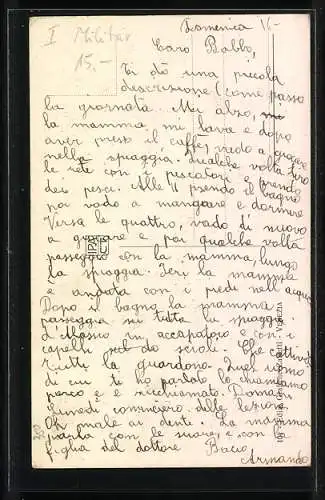 I Militär
15.-
Domenica 16-
Caro Babbo,
Ti dò una piccola
descrizione (come passo
la giornata. Mi alzo,
la mamma mi lava e dopo
aver preso il caffè, vado a giocare
nella spiaggia. Qualche volta tiro
le reti con i pescatori e prendo
dei pesci. Alle 11 prendo il bagno
poi vado a mangiare e dormire
Verso le quattro, vado di nuovo
a giocare e poi qualche volta
passeggio con la mamma, lungo
la spiaggia. Ieri la mamma
è andata con i piedi nell'acqua
Dopo il bagno la mamma
passeggia su tutta la spiaggia
in accapatoio e con i
capelli sciolti. Che
tutti la guardano. Quel uomo
di cui te ho parlato lo chiamiamo
porco e è Domani
lunedì comincerò delle lezioni.
Ho male ai denti. La mamma
parla con le suore, e con la
figlia del dottore Bacio
Armando